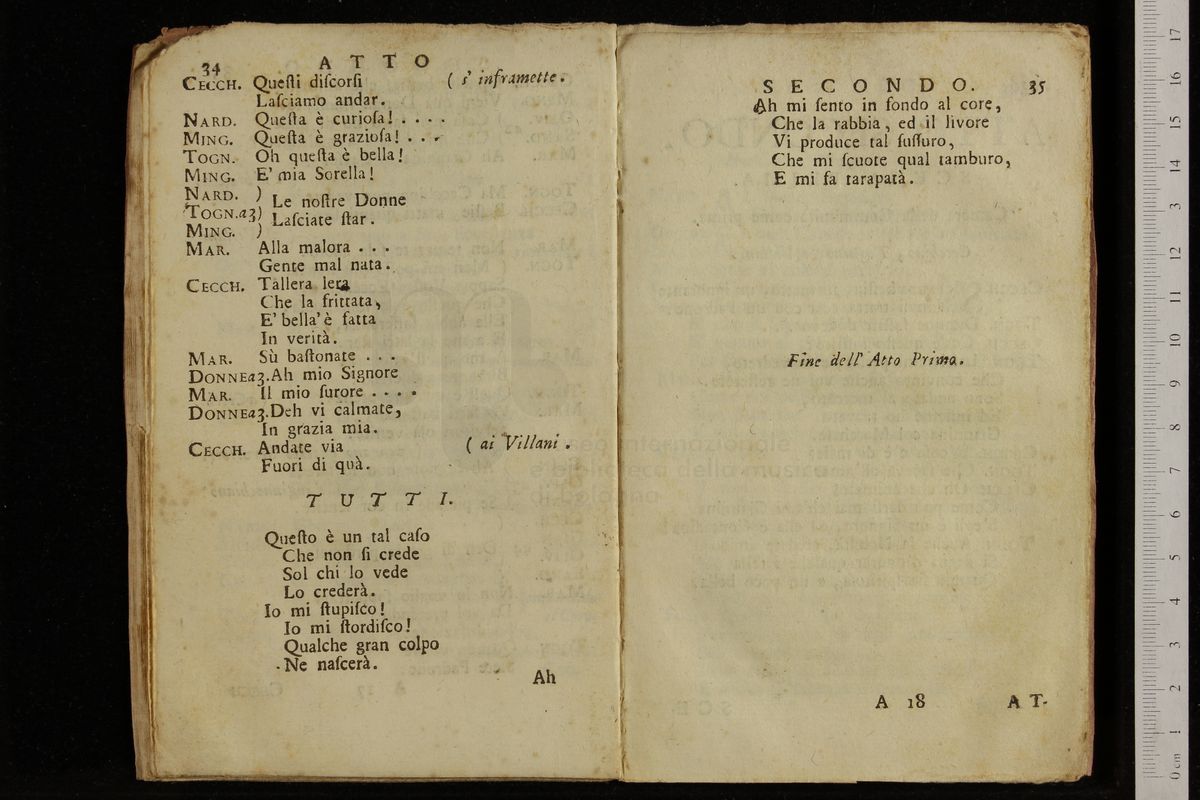 34 ATTO
CECCH. Queſti diſcorſi ( s' inframette.
Laſciamo andar.
NARD. Queſta è curioſa! . . . .
MING. Queſta è grazioſa! . . .
TOGN. Oh queſta è bella!
MING. E' mia Sorella!
NARD. )
TOGN.a3) Le noſtre Donne
MING. ) Laſciate ſtar.
MAR. Alla malora . . .
Gente mal nata.
CECCH. Tallera lera
Che la frittata,
E' bella' è fatta
In verità.
MAR. Sù baſtonate . . .
DONNEa3.Ah mio Signore
MAR. Il mio furore . . . .
DONNEa3.Deh vi calmate,
In grazia mia.
CECCH. Andate via ( ai Villani.
Fuori di quà.
TUTTI.
Queſto è un tal caſo
Che non ſi crede
Sol chi lo vede
Lo crederà.
Io mi ſtupiſco!
Io mi ſtordiſco!
Qualche gran colpo
Ne naſcerà.
Ah
SECONDO. 35
Ah mi ſento in fondo al core,
Che la rabbia, ed il livore
Vi produce tal ſuſſuro,
Che mi ſcuote qual tamburo,
E mi fa tarapatà.
Fine dell' Atto Primo.
A 18 AT-
museo internazionale
e biblioteca della musica
di bologna
0 cm 1 2 3 4 5 6 7 8 9 10 11 12 13 14 15 16 17